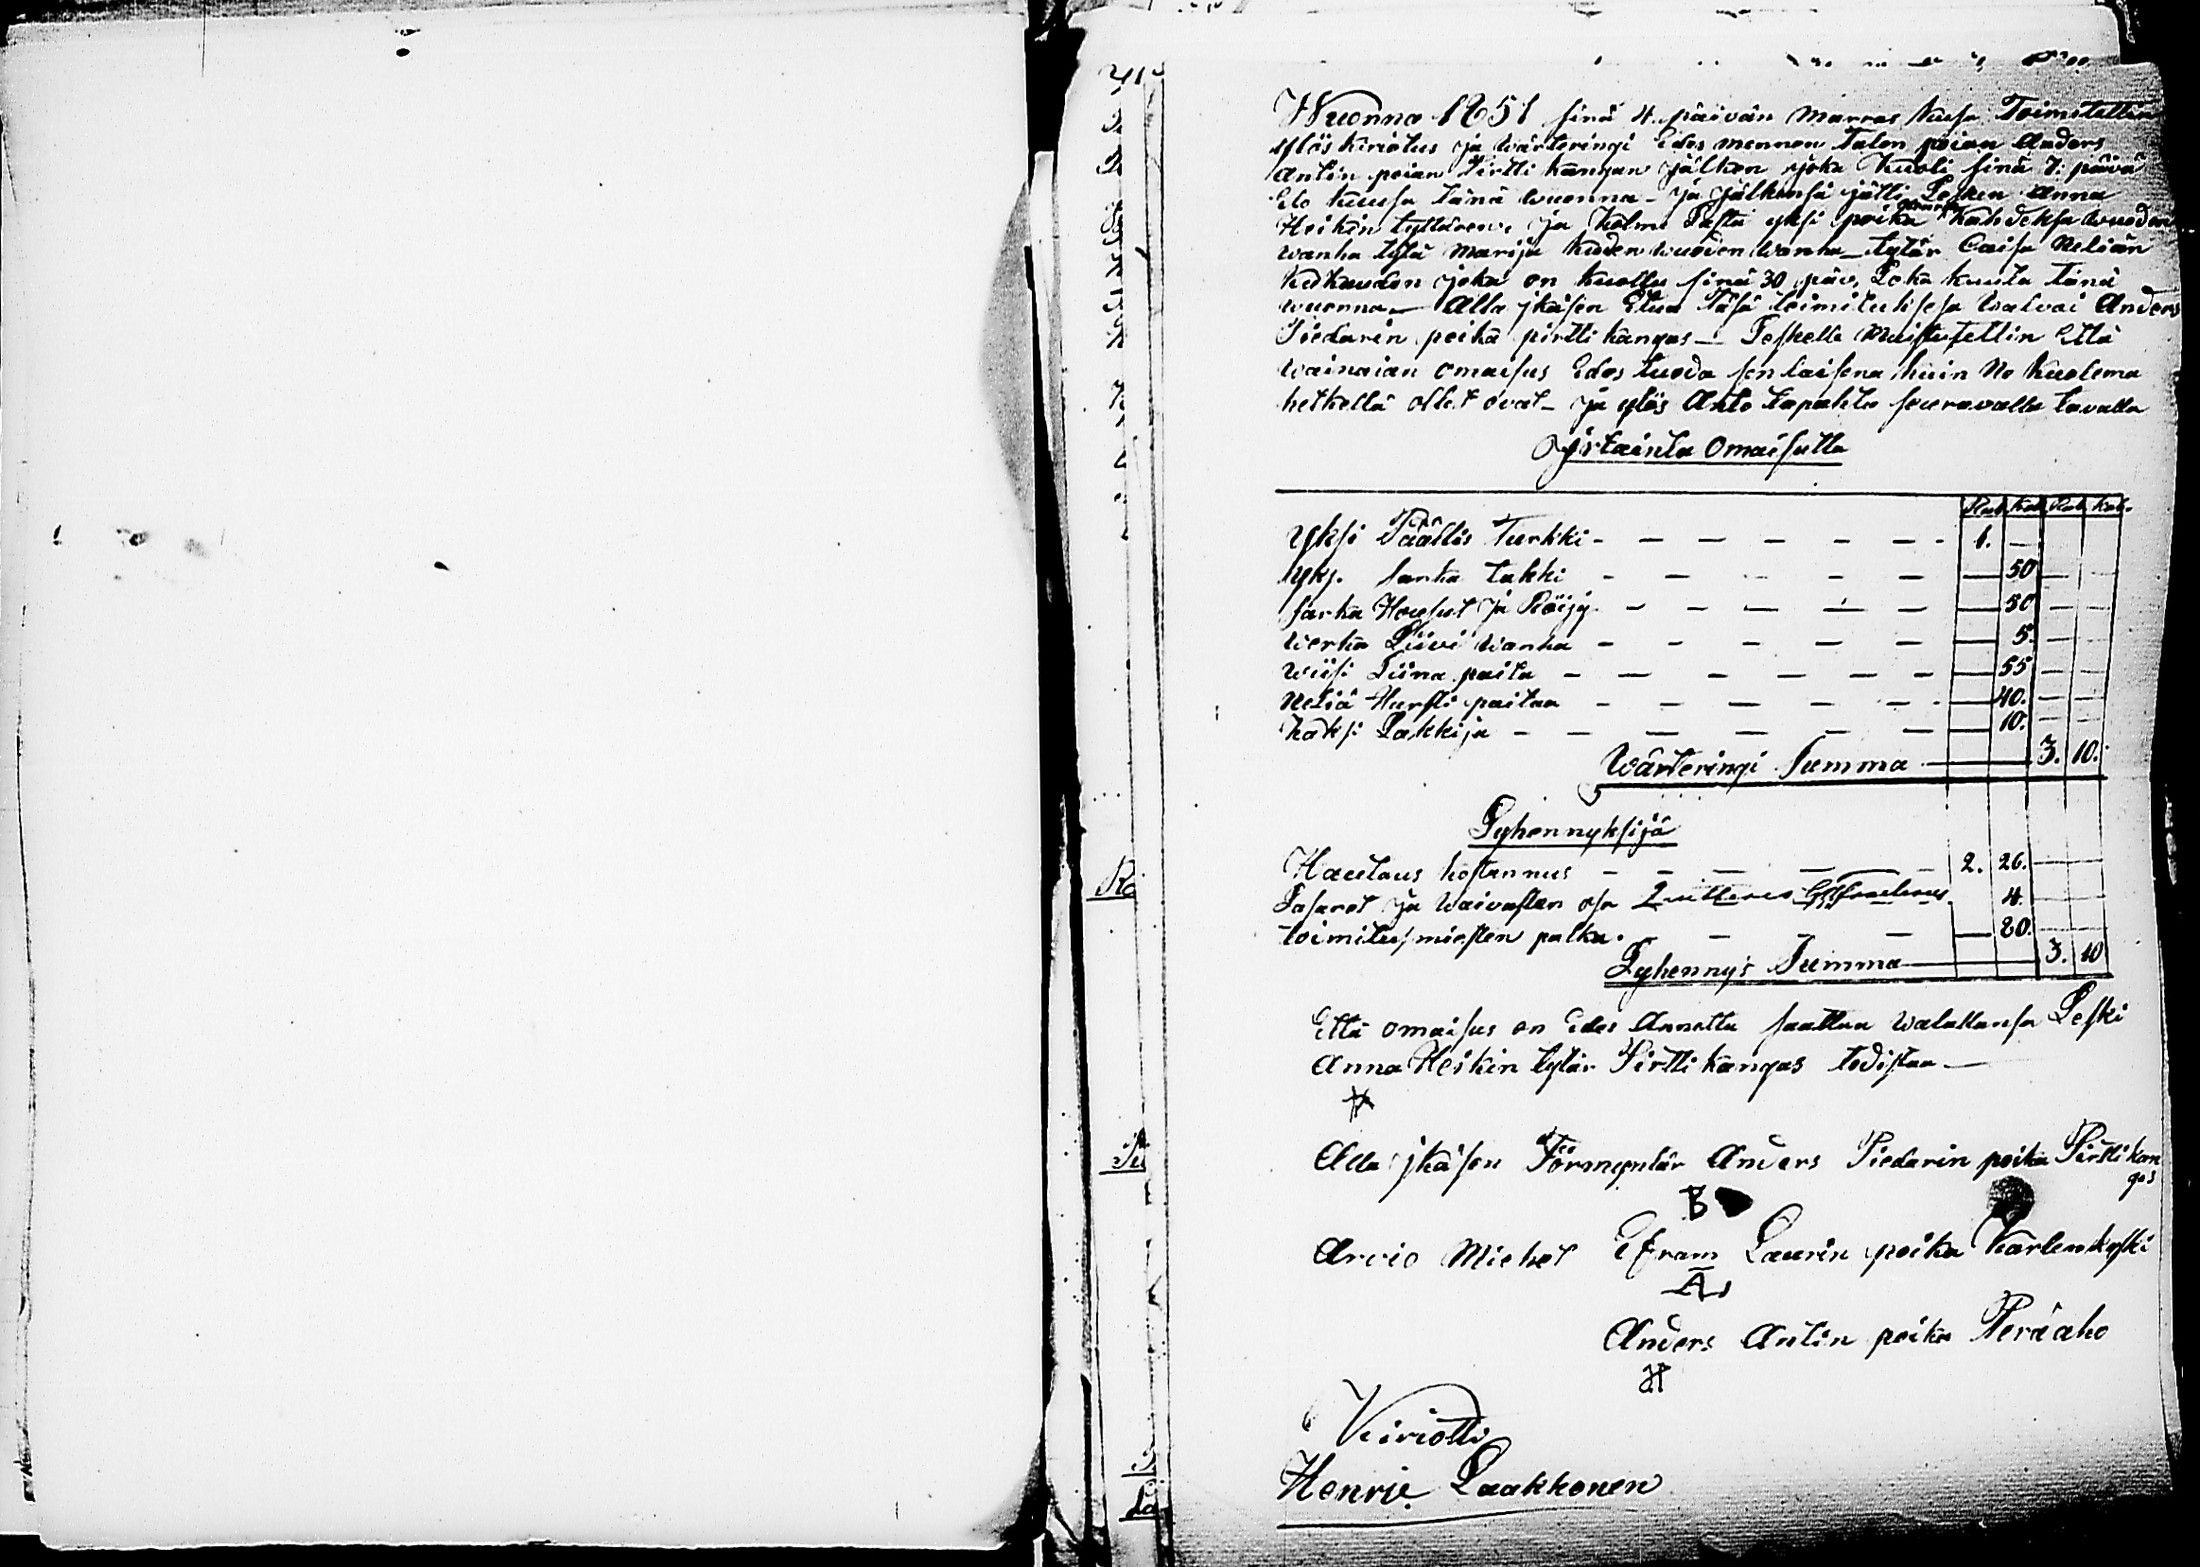 Wuonna 1851 sinä 4. päivän marras kuusa Toimitettin
ylös kirioitus ja wärteringi Edes mennen Talon poian Anders
Antin poian Pirtti kangan jälken joka kuoli sinä 7. päivä
Elo kuusa tänä wuonna - ja jälkensä jätti Lesken Anna
Heikin tyttären, ja kolme Lasta yksi poika kahdeksa wuoden
wanha tytä Marija kuden wuoden wanha - tytär Caisa Neliän
kukauden joka on kuollu sinä 30 päiv. Loka kuuta tänä
wuonna - Alla jkäsen Etua Täsä toimituksesa walvoi Anders
Piedarin poika pirtti kangas - Leskelle muistutettin Että
wainaian omaisus Edes tuoda sen laisena kuin No kuolema
hetkellä ollet ovat - ja ylös Anto tapahtu seuravalla tavalla
Jrtainta Omaisutta
Rub. Kop. Rub. Kop.
Yksi Päällis Turkki - 1. -
Yks. sarka takki - 50
sarka Housut ja Röijy - 50
werka Liivi wanha - 5.
wiisi Liina paita - 55
neliä Hursti paitaa - 40.
kaksi Lakkija - 10.
Wärteringi Summa 3. 10.
Lyhennyksijä
Hautaus kostannus - 2. 26.
Tasarot ja waivasten osa 4.
toimitus miesten palka. - 80.
Lyhennys Summa 3. 10
Että omaisus on Edes Annettu saattaa walallansa Leski
Anna Heikin tytär Pirtti kangas todistaa -
Alla jkäsen Förmyntär Anders Piedarin poika Pirtti kan
gas
B
Arvio Miehet Efram Laurin poika Karlenkyski
A
Anders Antin poika Peräaho
Kiriotti
Henric Laakkonen